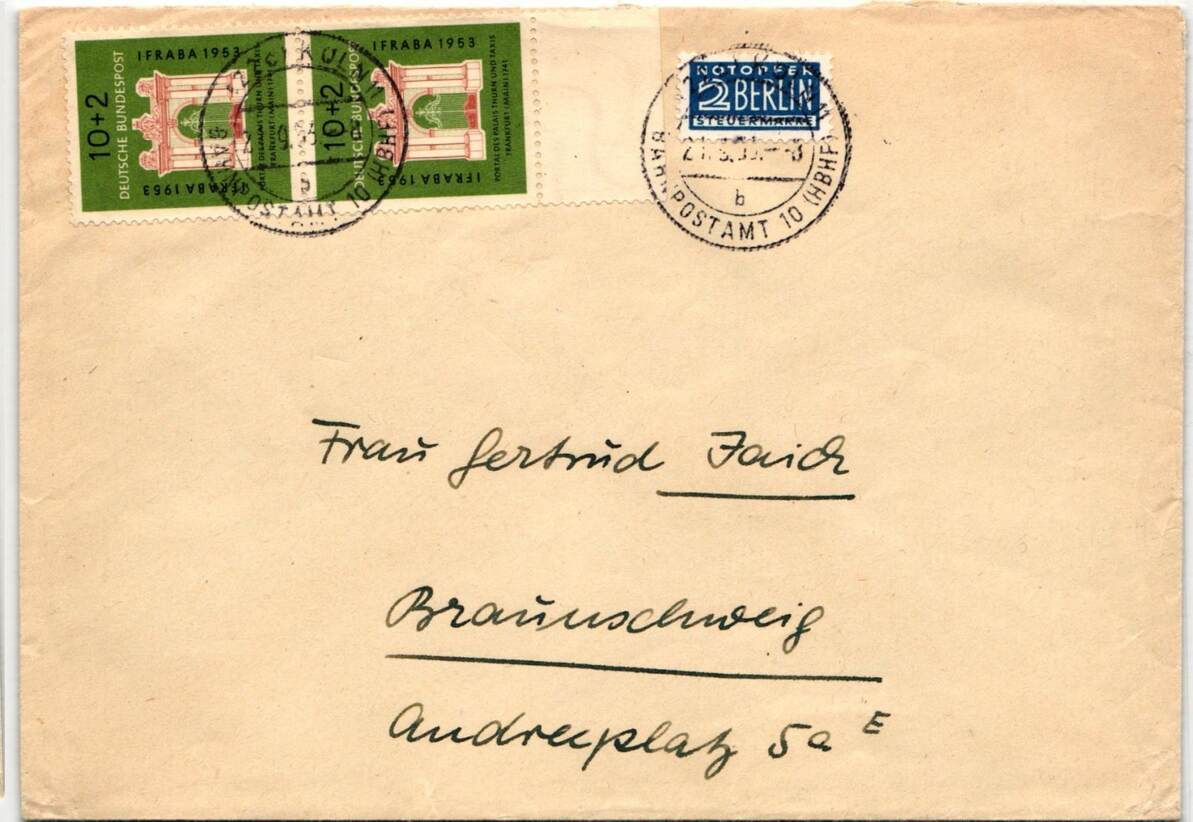 IFRABA 1953
10+2
DEUTSCHE BUNDESPOST
PORTAL DES PALAIS THURN UND TAXIS
FRANKFURT (MAIN) 1741
IFRABA 1953
IFRABA 1953
10+2
DEUTSCHE BUNDESPOST
PORTAL DES PALAIS THURN UND TAXIS
FRANKFURT (MAIN) 1741
IFRABA 1953
KÖLN
b
BAHNPOSTAMT 10 (HBHF)
NOTOPFER
2 BERLIN
STEUERMARKE
b
BAHNPOSTAMT 10 (HBHF)
Frau Gertrud Jaich
Braunschweig
Andreeplatz 5a E